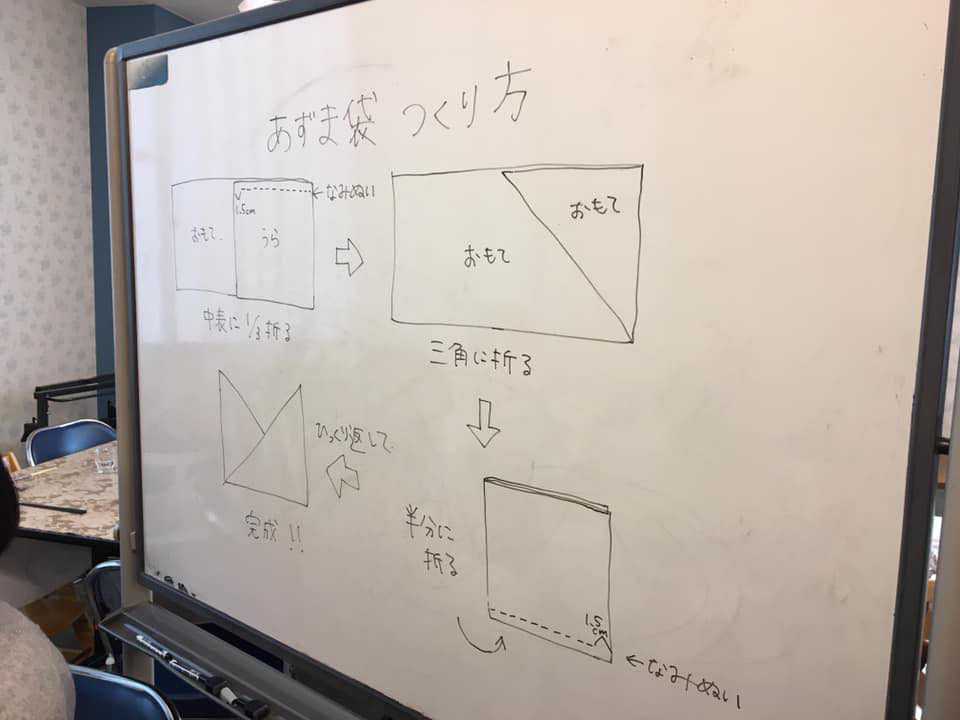 あずま袋 つくり方
←なみぬい
1.5cm
おもて
うら
中表に 1/3 折る
おもて
おもて
三角に折る
半分に
折る
1.5
cm
←なみぬい
ひっくり返して
完成!!